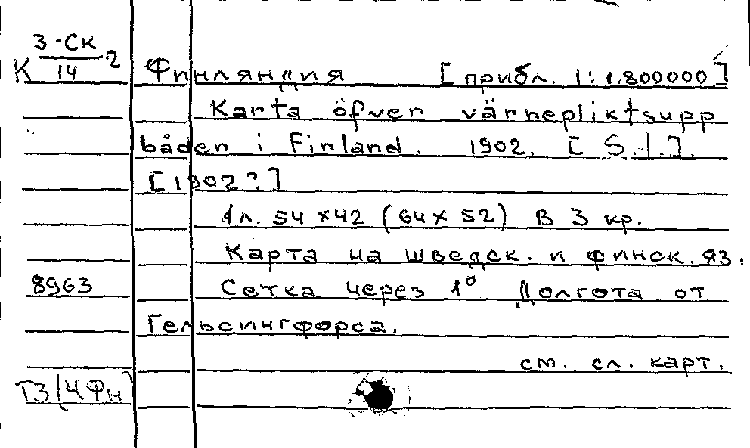 К 3-СК/14 2
Финляндия [прибл. 1:1.800000]
Karta öfver värnepliktsupp
båden i Finland. 1902. [S.l.].
[1902?]
1л. 54 х 42 (64 х 52) в 3 кр.
Карта на шведск. и финск. яз.
8963 Сетка через 1° Долгота от
Гельсингфорса.
см. сл. карт.
Т3/4Фн